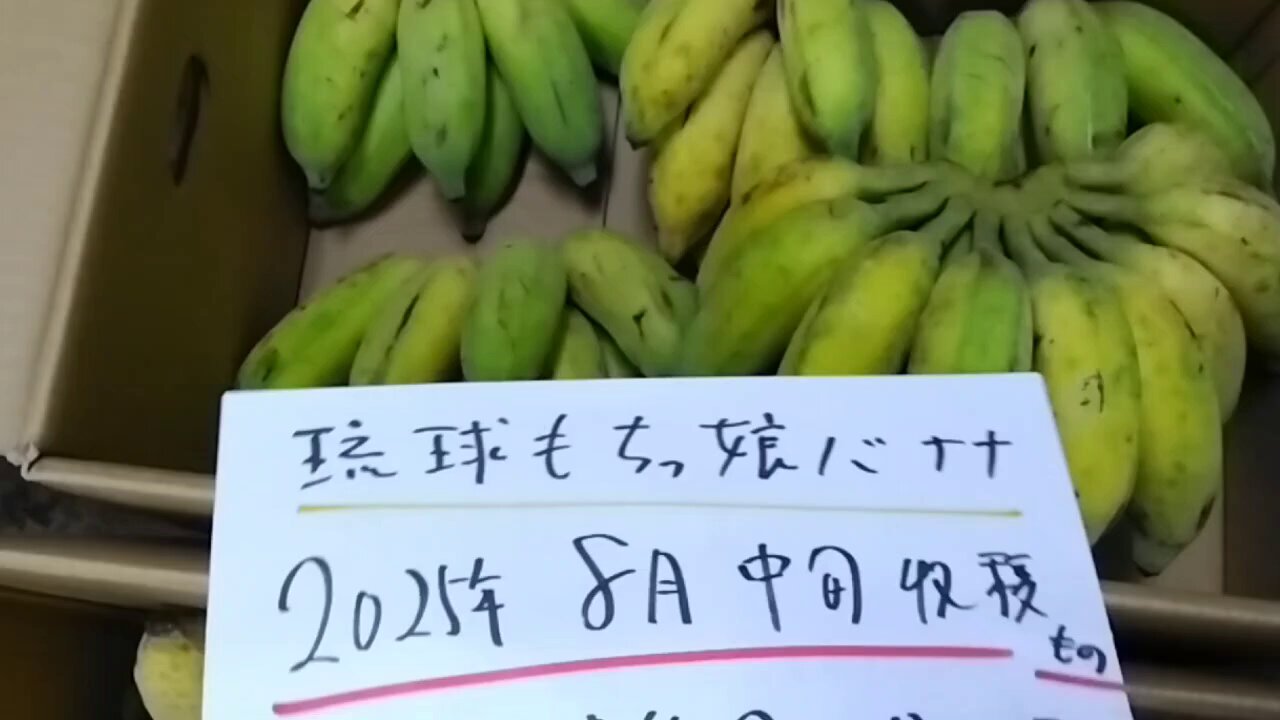 琉球もちっ娘バナナ
2025年 8月 中旬 収穫
もの